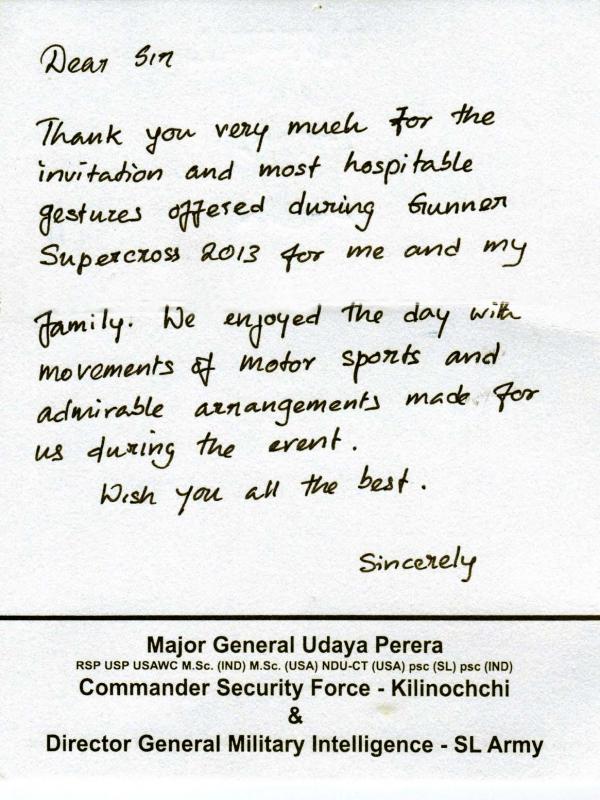 Dear Sir
Thank you very much for the
invitation and most hospitable
gestures offered during Gunner
Supercross 2013 for me and my
family. We enjoyed the day with
movements of motor sports and
admirable arrangements made for
us during the event.
Wish you all the best.
Sincerely
Major General Udaya Perera
RSP USP USAWC M.Sc. (IND) M.Sc. (USA) NDU-CT (USA) psc (SL) psc (IND)
Commander Security Force - Kilinochchi
&
Director General Military Intelligence - SL Army